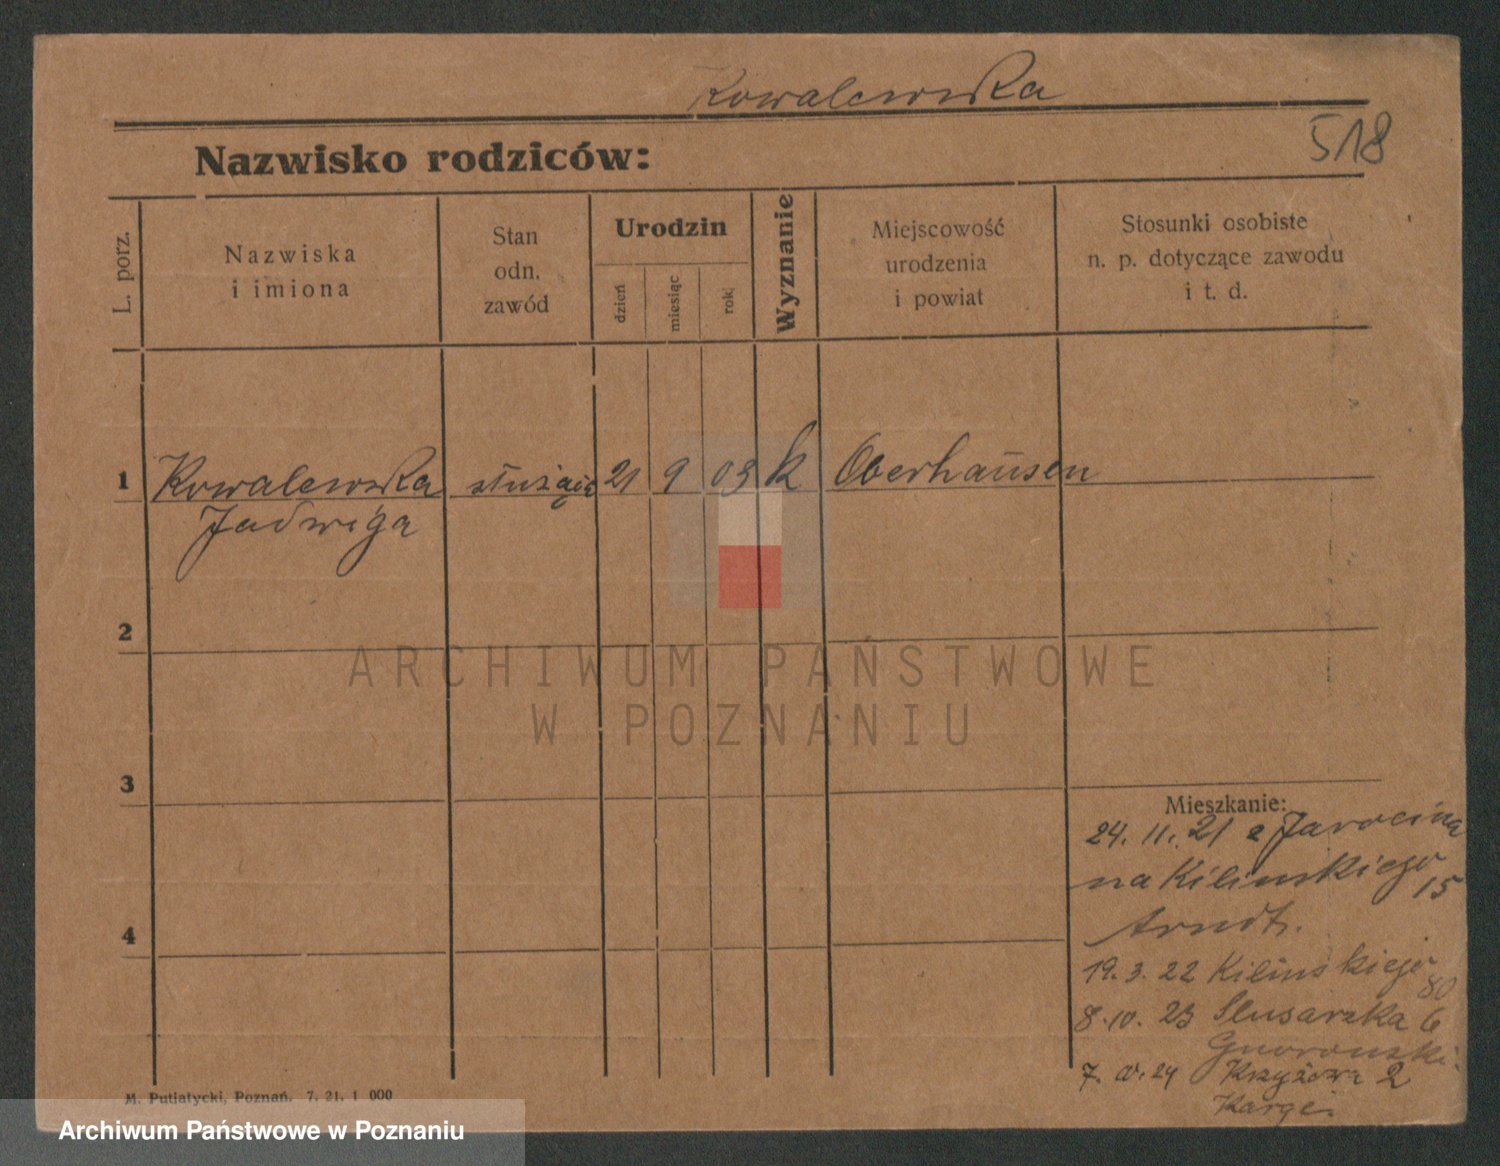 Kowalewska
518
Nazwisko rodziców:
L. porz.
Nazwiska
i imiona
Stan
odn.
zawód
Urodzin
dzień
miesiąc
rok
Wyznanie
Miejscowość
urodzenia
i powiat
Stosunki osobiste
n. p. dotyczące zawodu
i t. d.
1 Kowalewska służąca 21 9 03 k Oberhausen
Jadwiga
2
3
4
Mieszkanie:
24. 11. 21 z Jarocina
na Kilinskiego
15
Arndt.
19. 3. 22 Kilinskiego
80
8. 10. 23 Slusarska 6
7. 24 Krzyżowa 2
M. Putiatycki, Poznań. 7. 21. 1 000
ARCHIWUM PAŃSTWOWE
W POZNANIU
Archiwum Państwowe w Poznaniu